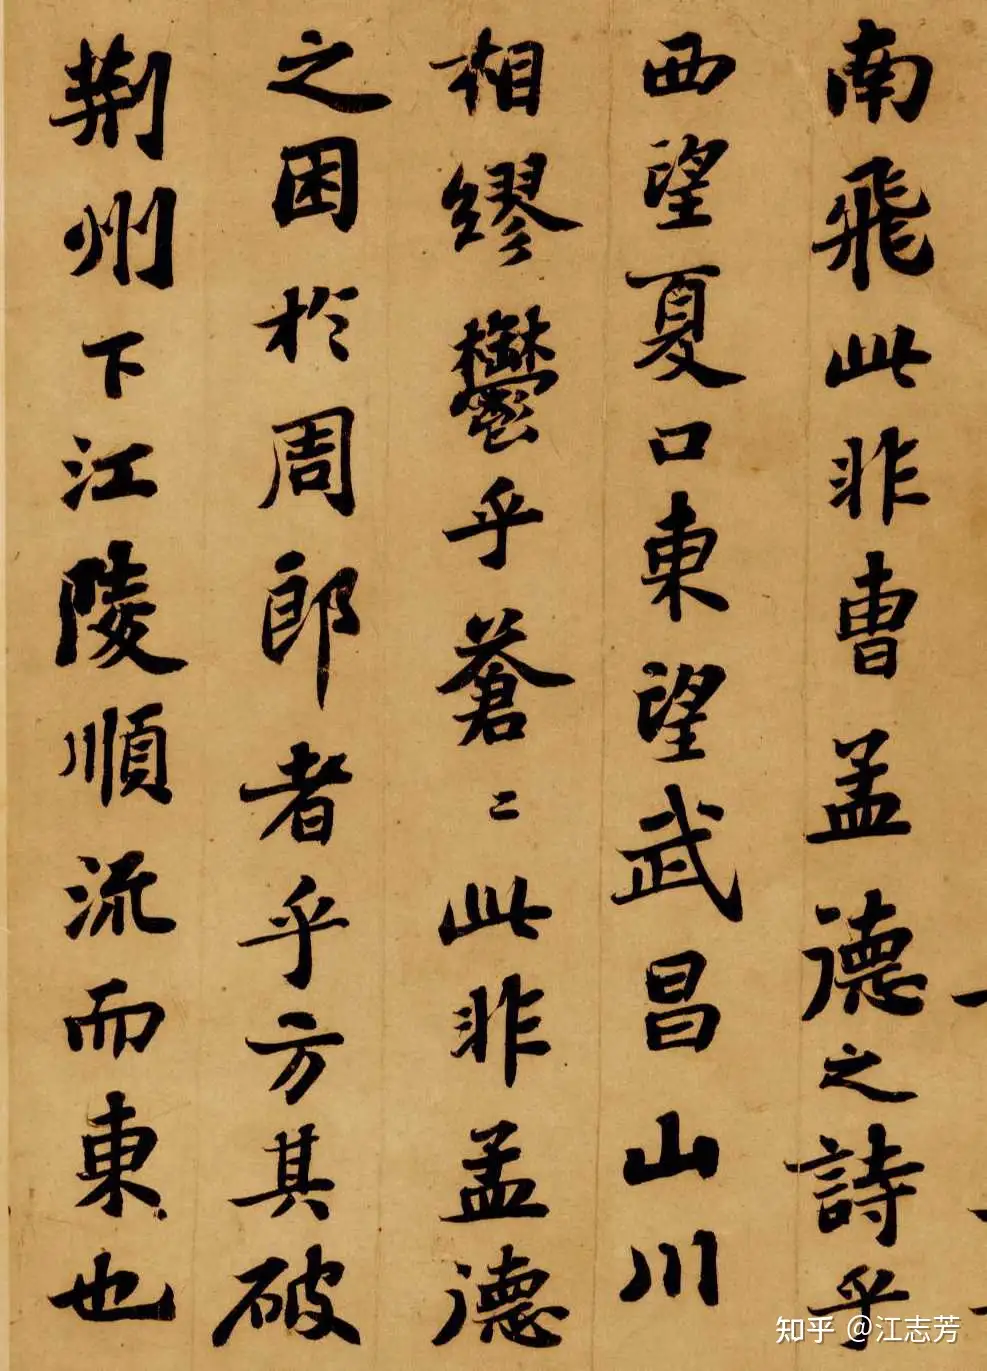 南飛此非曹孟德之詩乎
西望夏口東望武昌山川
相繆鬱乎蒼〻此非孟德
之困於周郎者乎方其破
荆州下江陵順流而東也
知乎 @江志芳